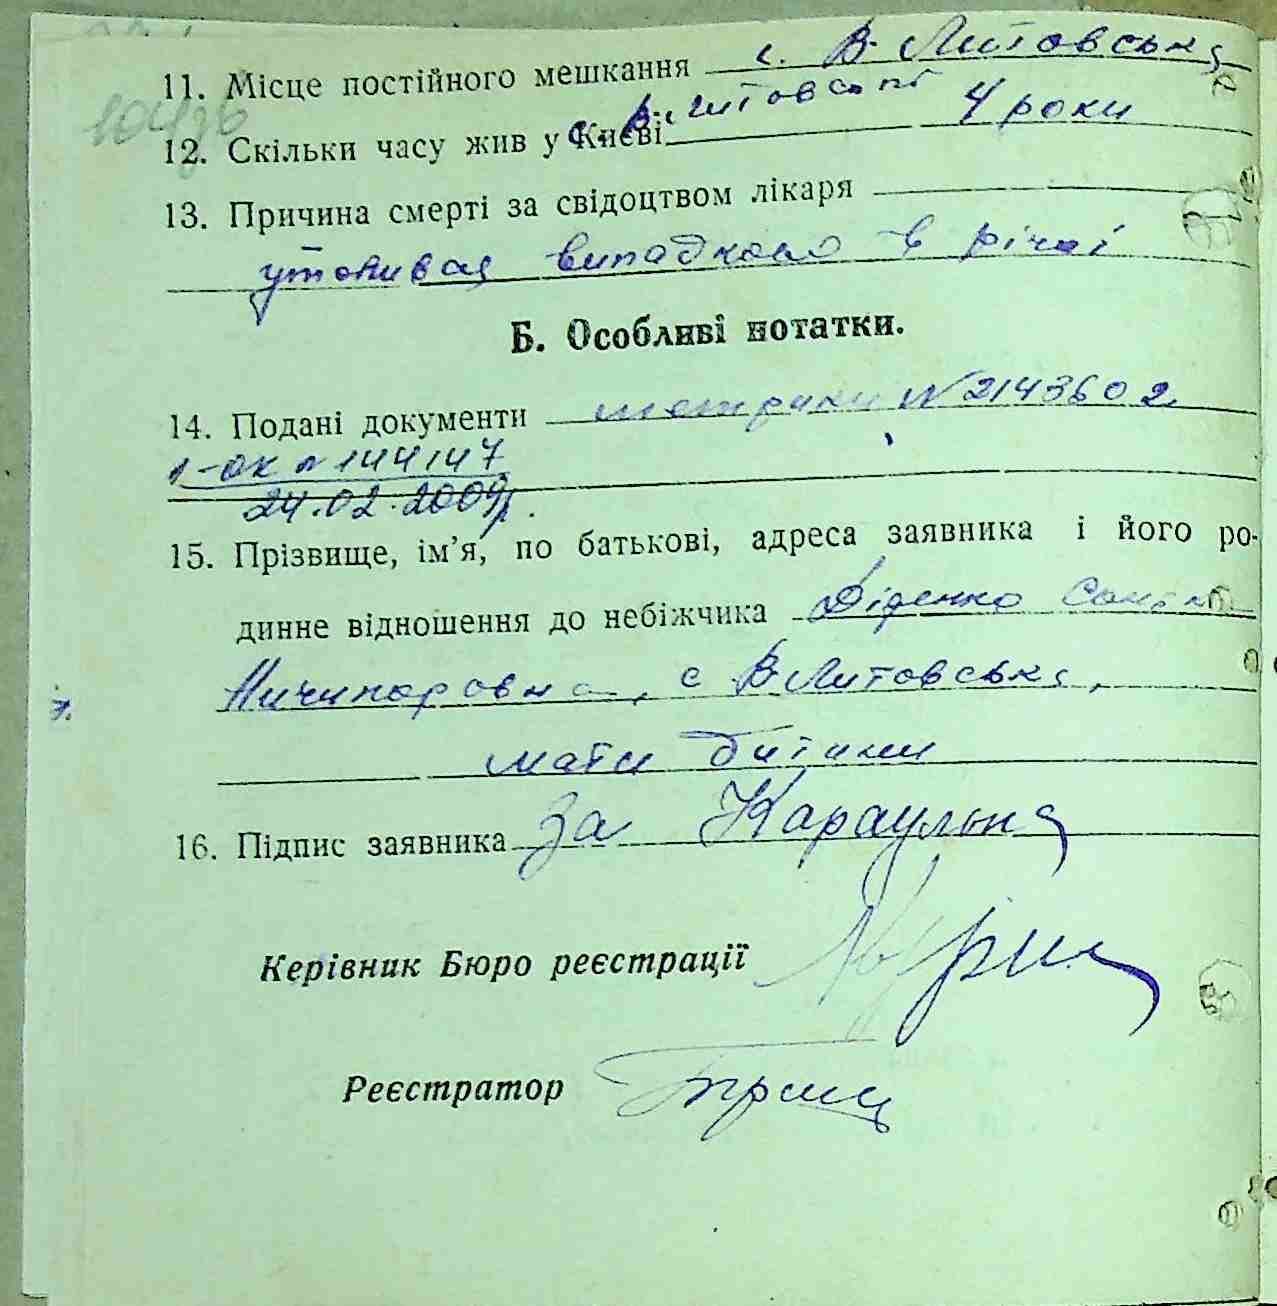 11. Місце постійного мешкання с. В-Литовська
10436
с. В. Литовські
12. Скільки часу жив у Києві 4 роки
13. Причина смерті за свідоцтвом лікаря
утонився випадково в річці
Б. Особливі нотатки.
14. Подані документи метрики № 2143602
1-ОК № 144147
24.02.2009р.
15. Прізвище, ім’я, по батькові, адреса заявника і його ро-
динне відношення до небіжчика Діденко
Ничипоровна, с В-Литовська,
мати дитини
16. Підпис заявника За Караульна
Керівник Бюро реєстрації
Реєстратор